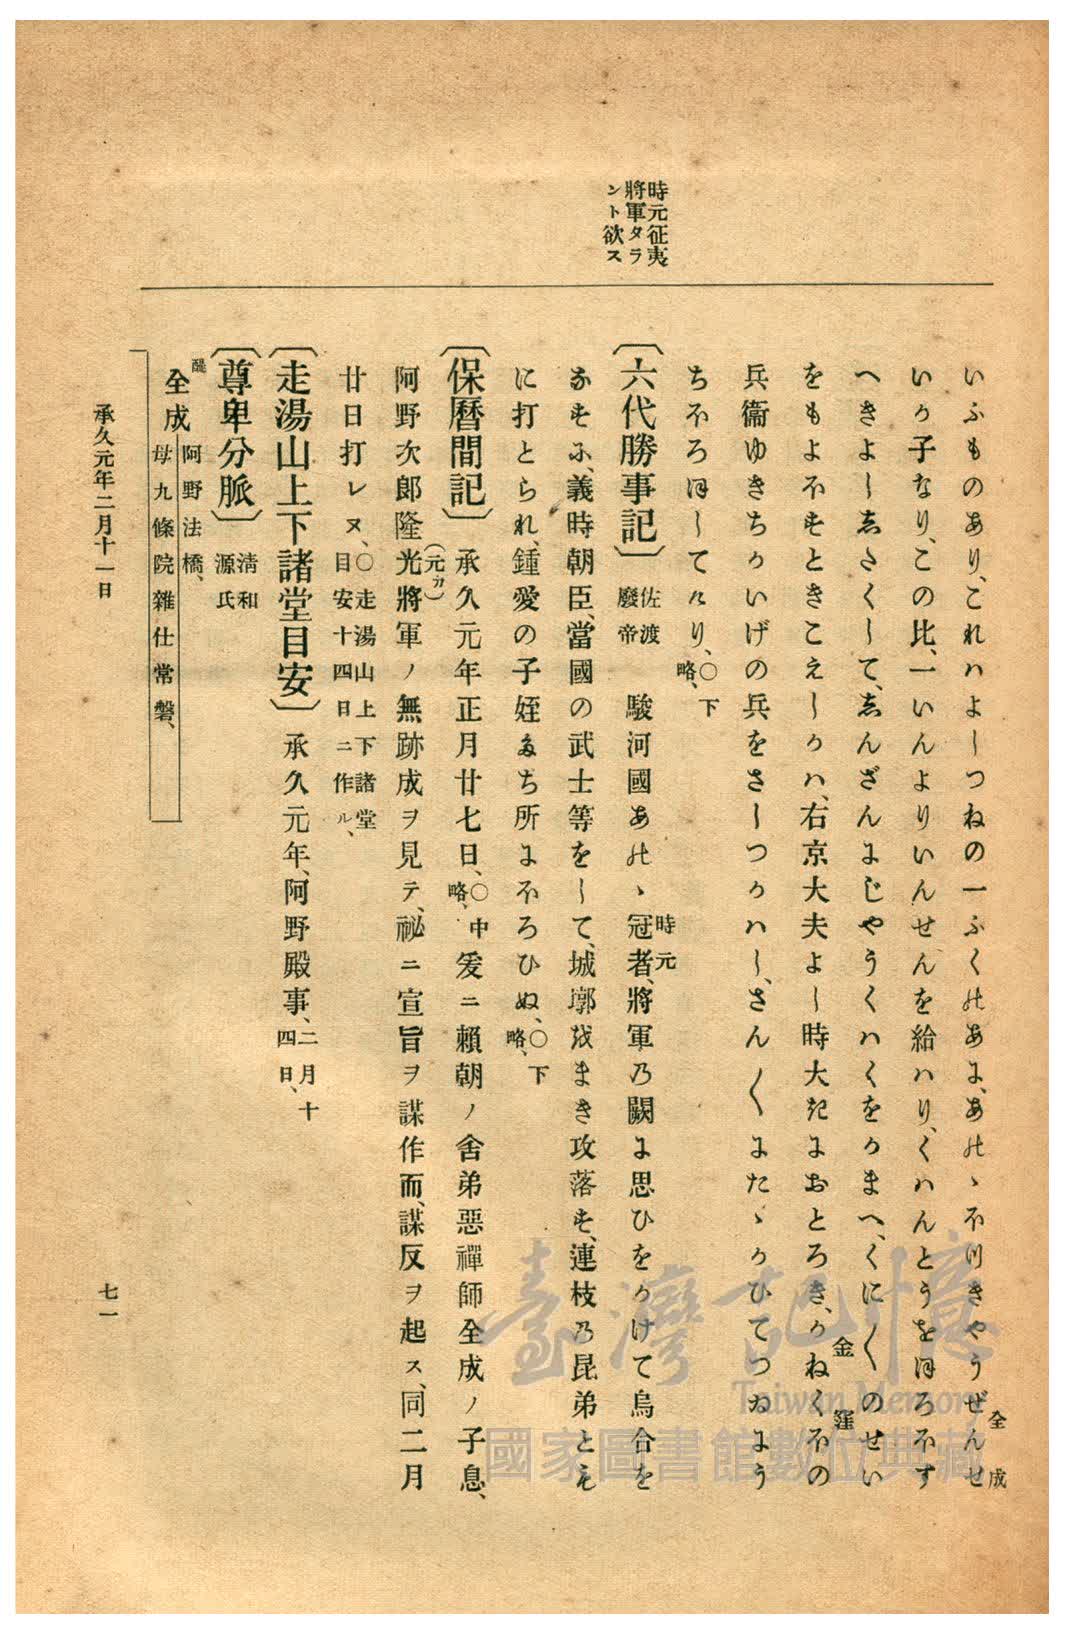 時元征夷
將軍タラ
ント欲ス
いふものあり、これハよしつねの一ふくのあに、あのゝほうきやうぜんせ
全成
いか子なり、この比、一いんよりいんせんを給ハり、くハんとうをほろほす
へきよしゑさくして、ゑんざんにじやうくハくをかまへ、くに〱のせい
をもよほすときこえしかハ、右京大夫よし時大きにおとろき、かねくほの
金窪
兵衞ゆきちかいげの兵をさしつかハし、さん〱にたゝかひてつゐにう
ちほろほしてけり、○下略、
〔六代勝事記〕佐渡廢帝 駿河國あのゝ冠者、將軍の闕に思ひをかけて烏合を
時元
なすに、義時朝臣、當國の武士等をして、城墎をまき攻落す、連枝の昆弟とも
に打とられ、鍾愛の子姪たち所にほろひぬ、○下略、
〔保曆間記〕承久元年正月廿七日、○中略、爰ニ賴朝ノ舍弟惡禪師全成ノ子息、
阿野次郎隆光將軍ノ無跡成ヲ見テ、祕ニ宣旨ヲ謀作而、謀反ヲ起ス、同二月
(元カ)
廿日打レヌ、○走湯山上下諸堂目安十四日ニ作ル、
〔走湯山上下諸堂目安〕承久元年、阿野殿事、二月十四日、
〔尊卑分脈〕淸和源氏
醍
全成
阿野法橋、
母九條院雜仕常磐、
承久元年二月十一日
七一
臺灣記憶
Taiwan Memory
國家圖書館數位典藏